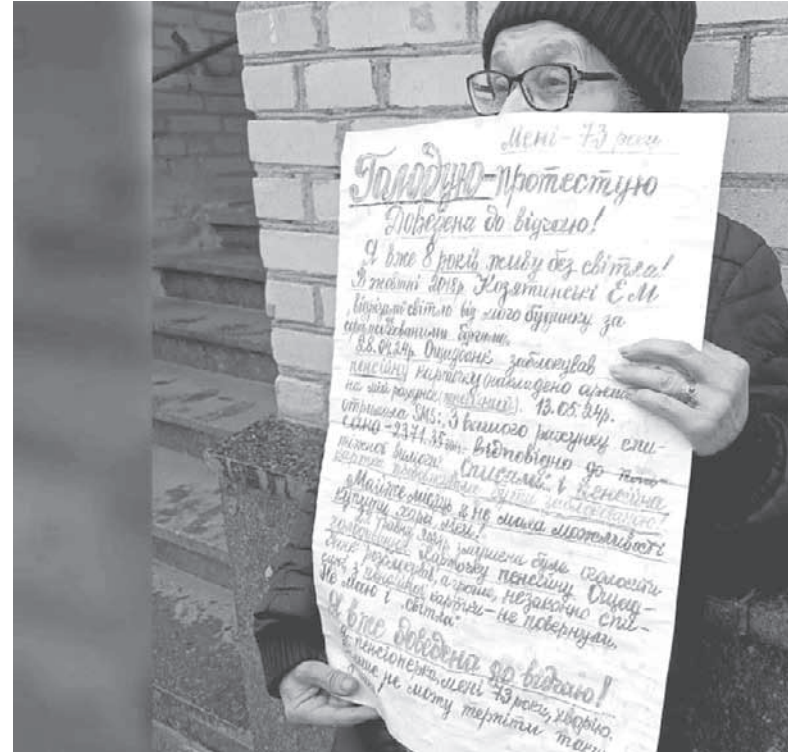 Мені - 73 роки
Голодую-протестую
Доведена до відчаю!
Я вже 8 років живу без світла!
В жовтні 2015р Козятинські Е М
відрізали світло від мого будинку за
сфальсифікованими боргами.
28.04.24р. Ощадбанк заблокував
пенсійну карточку (накладено арешт
на мій рахунок 13.05.24р.
отримала SMS: З вашого рахунку спи-
сано - 2371.35 відповідно до
вимоги. Списали і пенсійна
картка
Майже місяць я не мала можливості
купувати
змушена була оголосити
голодування. Карточку пенсійну Ощад-
банк а гроші, незаконно спи-
сані з пенсійної картки - не повернули.
Не маю і "світла"
Я вже доведена до відчаю!
Я пенсіонерка, мені 73 роки, хворію.
не можу терпіти